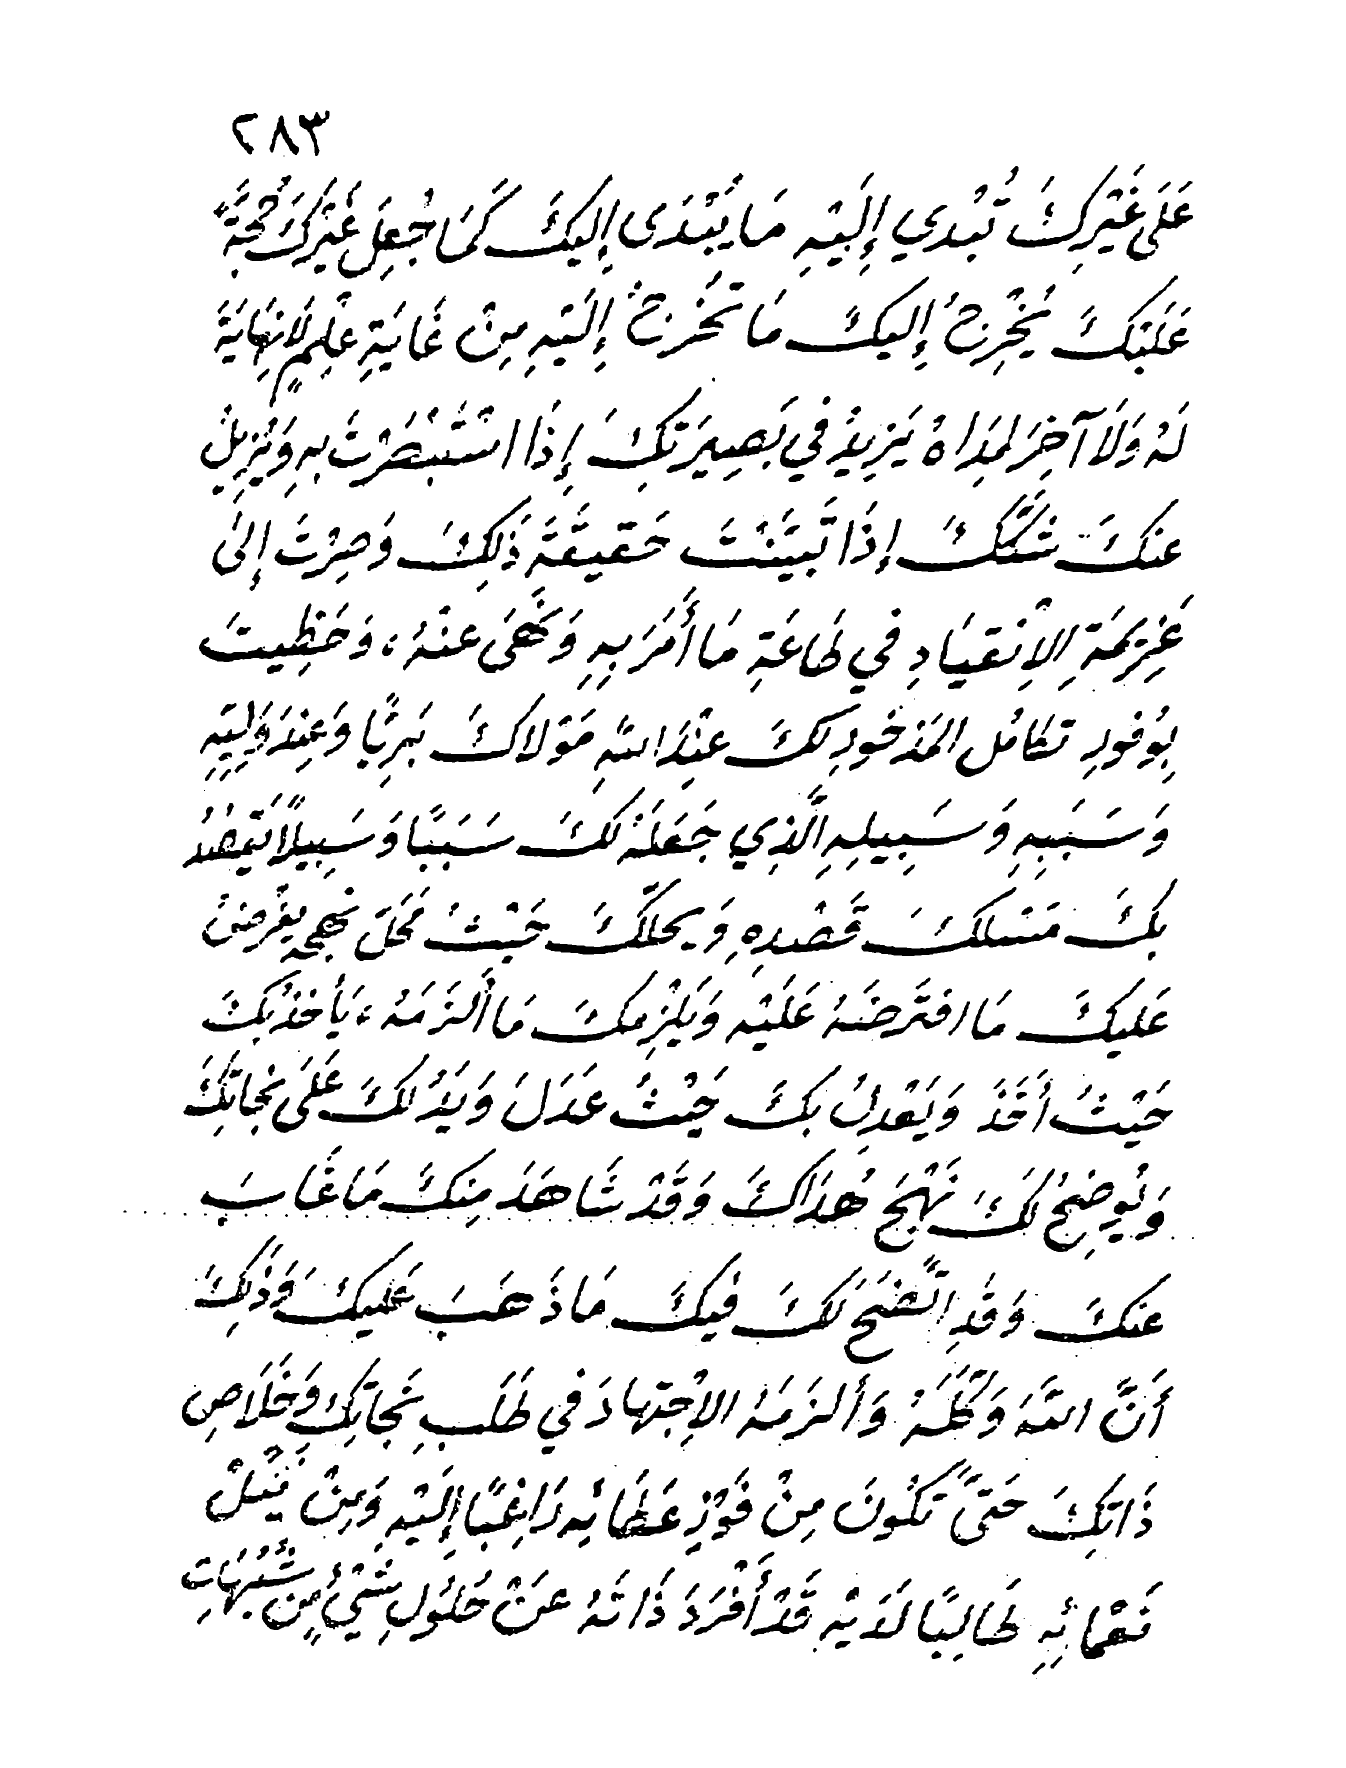 ٢٨٣
عَلَى غَيْرِكَ تُبْدِي إِلَيْهِ مَا يُبْدَى إِلَيكَ كَمَا جُعِلَ غَيْرُكَ حُجَّةً
عَلَيْكَ يُخْرِجُ إِلَيكَ مَا تَخْرُجُ إِلَيْهِ مِنْ غَايَةِ عِلْمٍ لَا نِهَايَةَ
لَهُ وَلَا آخِرَ لِمَدَاهُ يَزِيدُ فِي بَصِيرَتِكَ إِذَا اسْتَبْصَرْتَ بِهِ وَيُزِيلُ
عَنكَ شَكَّكَ إِذَا تَبَيَّنْتَ حَقِيقَةَ ذَلِكَ وَصِرْتَ إِلَى
عَزِيمَةِ الِانْقِيَادِ فِي طَاعَةِ مَا أَمَرَ بِهِ وَنَهَى عَنْهُ، وَحَظِيتَ
بِوُفُورِ تَكَامُلِ المَذْخُورِ لَكَ عِنْدَ اللَّهِ مَوْلَاكَ بَرِيًّا وَعِنْدَ وَلِيِّهِ
وَسَبَبِهِ وَسَبِيلِهِ الَّذِي جَعَلَهُ لَكَ سَبَبًا وَسَبِيلًا يَقْصُدُ
بِكَ مَسْلَكَ قَصْدِهِ وَيُحِلُّكَ حَيْثُ مَحَلَّ نَهْجِهِ يَفْرِضُ
عَلَيكَ مَا افتَرَضَهُ عَلَيْهِ وَيُلْزِمُكَ مَا أَلْزَمَهُ، يَأْخُذُ بِكَ
حَيْثُ أَخَذَ وَيَعْدِلُ بِكَ حَيْثُ عَدَلَ وَيَدُلُّكَ عَلَى نَجَاتِكَ
وَيُوضِحُ لَكَ نَهْجَ هُدَاكَ وَقَدْ شَاهَدَ مِنكَ مَا غَابَ
عَنكَ وَقَدِ اتَّضَحَ لَكَ فِيكَ مَا ذَهَبَ عَلَيكَ وَذَلِكَ
أَنَّ اللَّهَ وَكَّلَهُ وَأَلزَمَهُ الِاجْتِهَادَ فِي طَلَبِ نَجَاتِكَ وَخَلَاصِ
ذَاتِكَ حَتَّى تَكُونَ مِنْ فَوْزِ عَطَائِهِ رَاغِبًا إِلَيْهِ وَمِنْ نَيْلْ
نَعْمَائِهِ طَالِبًا لَدَيْهِ قَدْ أَفْرَدَ ذَاتَهُ عَنْ حُلُولِ شَيْءٍ مِنْ شُبُهَاتِ